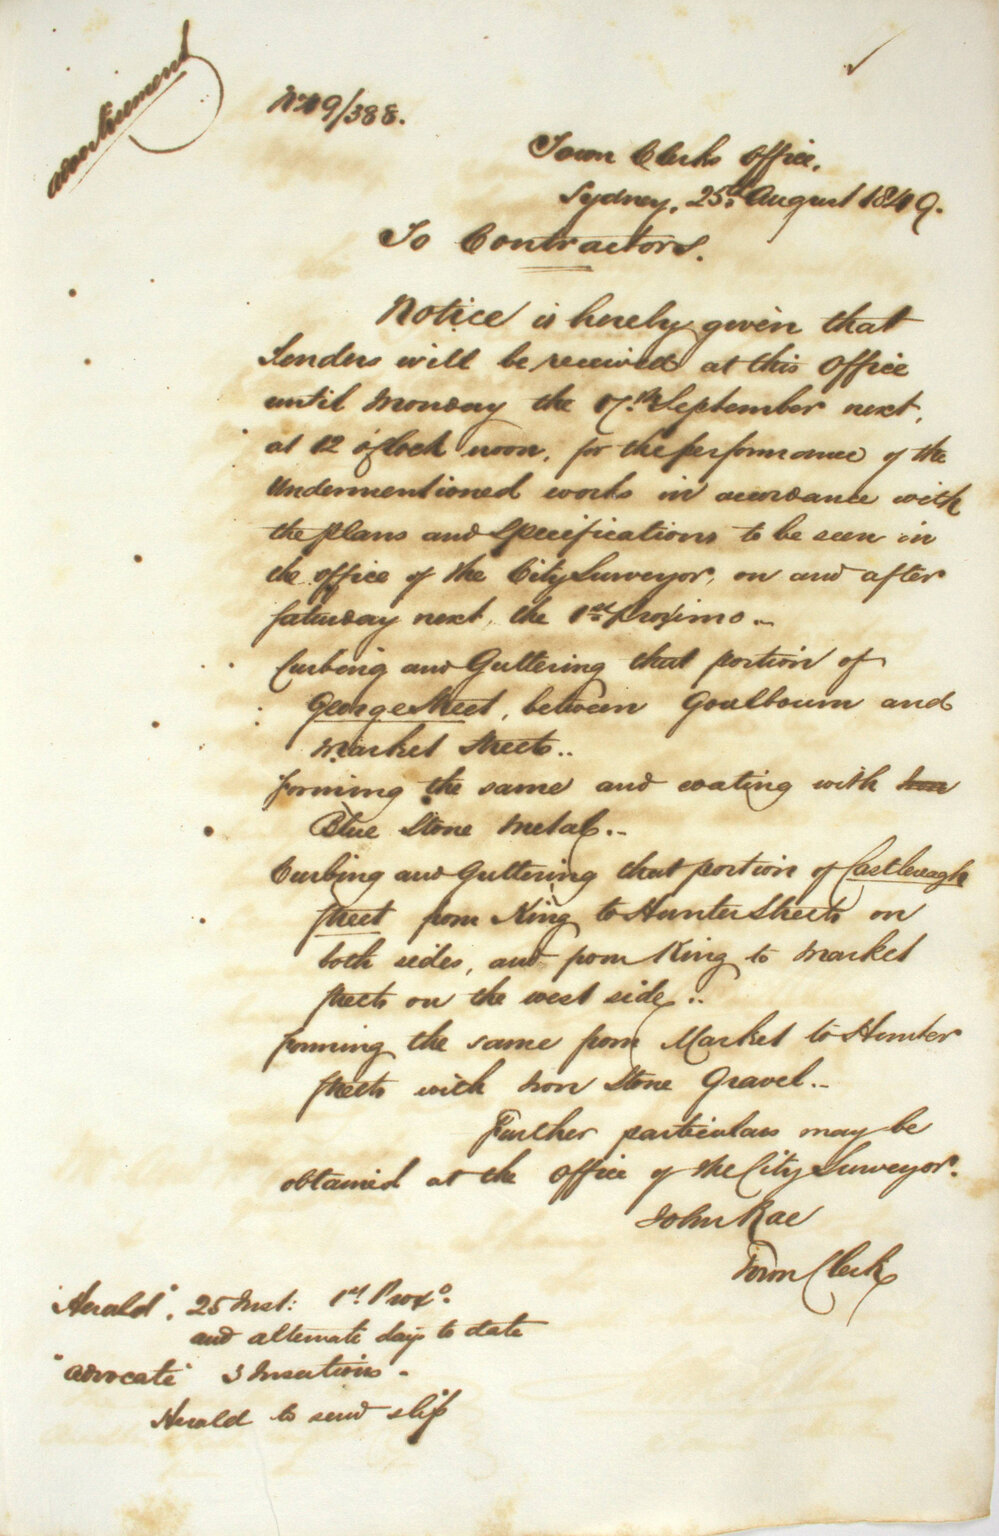 Advertisement
No 49/388.
Town Clerks Office,
Sydney, 25th August 1849.
To Contractors.
Notice is hereby given that
Tenders will be received at this Office
until Monday the 17th September next,
at 12 o'Clock noon, for the performance of the
Undermentioned works in accordance with
the plans and Specifications to be seen in
the office of the City Surveyor, on and after
Saturday next, the 1st proximo..
Curbing and Guttering that portion of
George Street, between Goulbourn and
Market Streets..
Forming the same and coating with
Blue Stone Metal..
Curbing and Guttering that portion of Castlereagh
Street from King to Hunter Streets on
both sides, and from King to Market
Streets on the west side..
Forming the same from Market to Hunter
Streets with Iron Stone Gravel..
Further particulars may be
obtained at the Office of the City Surveyor.
John Rae
Town Clerk
"Herald". 25 Inst: 1st Proxo.
and alternate days to date
"Advocate" 3 Insertions.
Herald to send slip